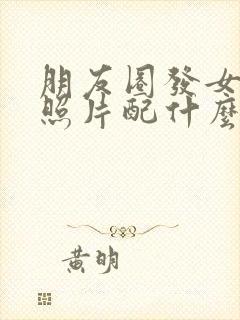 朋友圈發女
照片配什麼
黃明